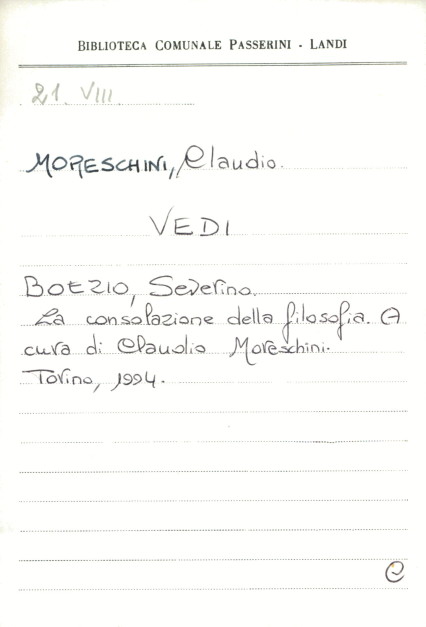 BIBLIOTECA COMUNALE PASSERINI - LANDI
21. VIII.
MORESCHINI, Claudio.
VEDI
BOEZIO, Severino.
La consolazione della filosofia. A
cura di Claudio Moreschini.
Torino, 1994.
C